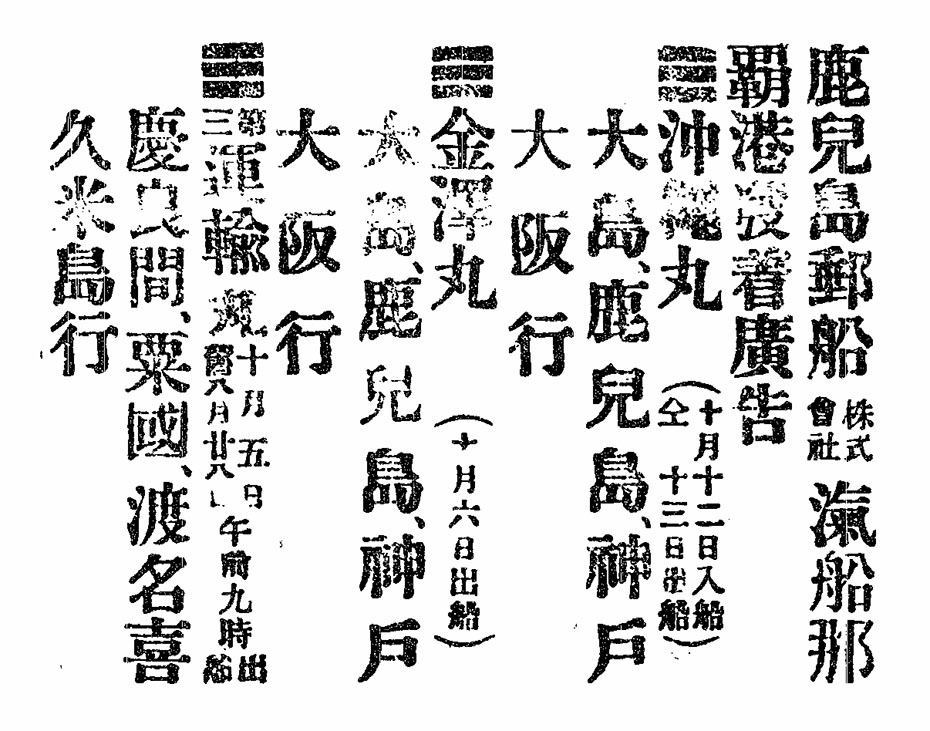 鹿兒島郵船株式會社汽船那
覇港發着廣告
☰沖繩丸(十月十二日入船 仝 十三日出船)
大島、鹿兒島、神戸
大阪行
☰金澤丸(十月六日出船)
大島、鹿兒島、神戸
大阪行
☰第三運輸丸十月五日 八月廿八日 午前九時出船
慶良間、粟國、渡名喜
久米島行